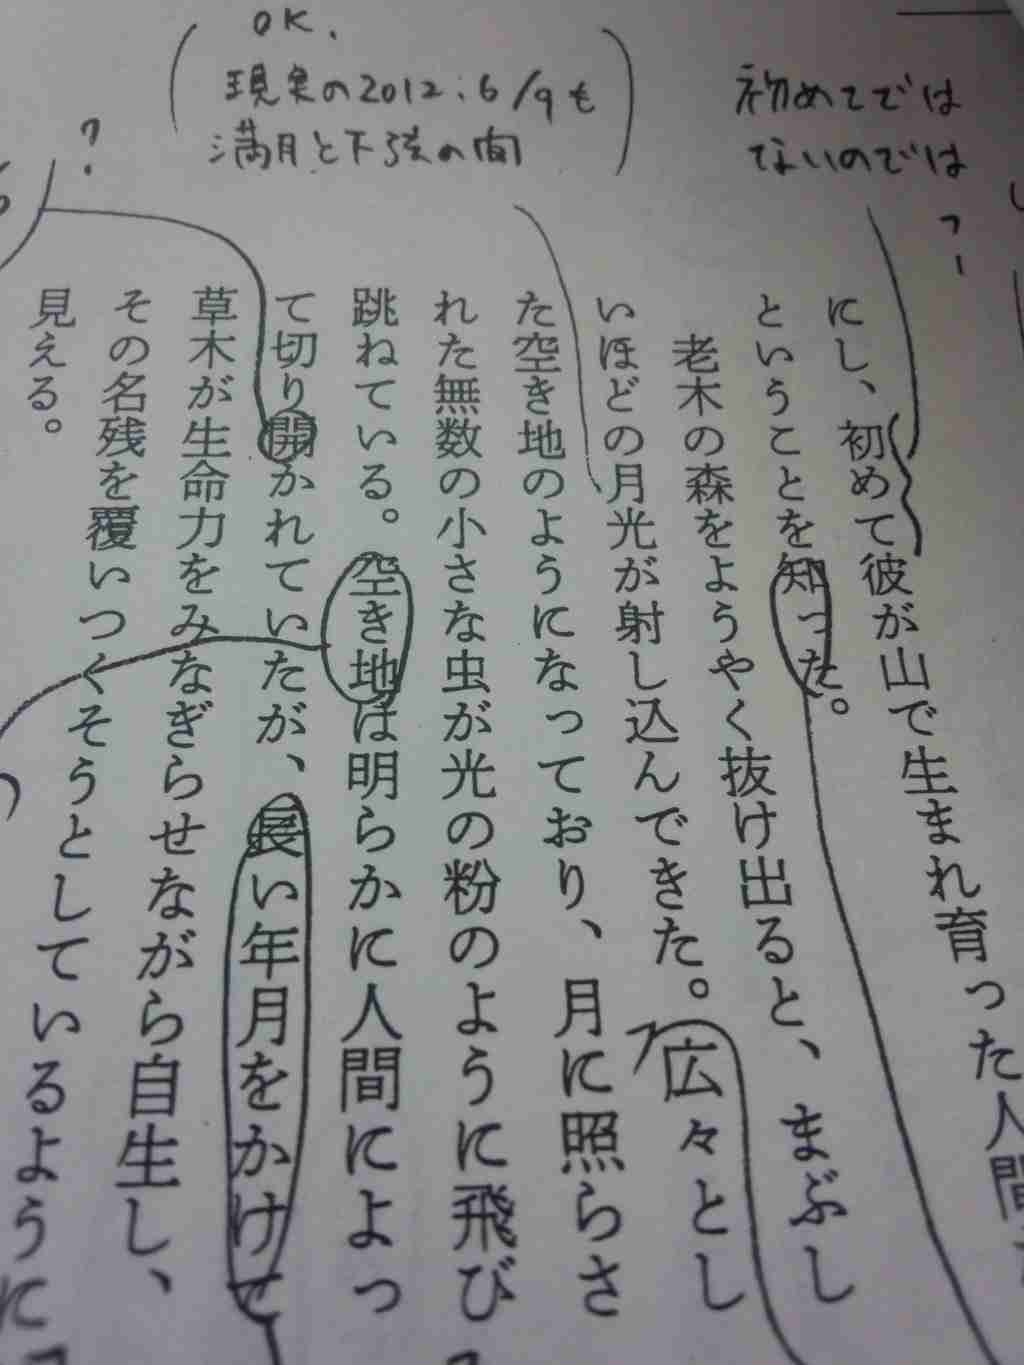 OK.
現実の2012.6/9も
満月と下弦の間
初めてでは
ないのでは
?
にし、初めて彼が山で生まれ育った人間
ということを知った。
老木の森をようやく抜け出ると、まぶし
いほどの月光が射し込んできた。広々とし
た空き地のようになっており、月に照らさ
れた無数の小さな虫が光の粉のように飛び
跳ねている。空き地は明らかに人間によっ
て切り開かれていたが、長い年月をかけて
草木が生命力をみなぎらせながら自生し、
その名残を覆いつくそうとしているように
見える。